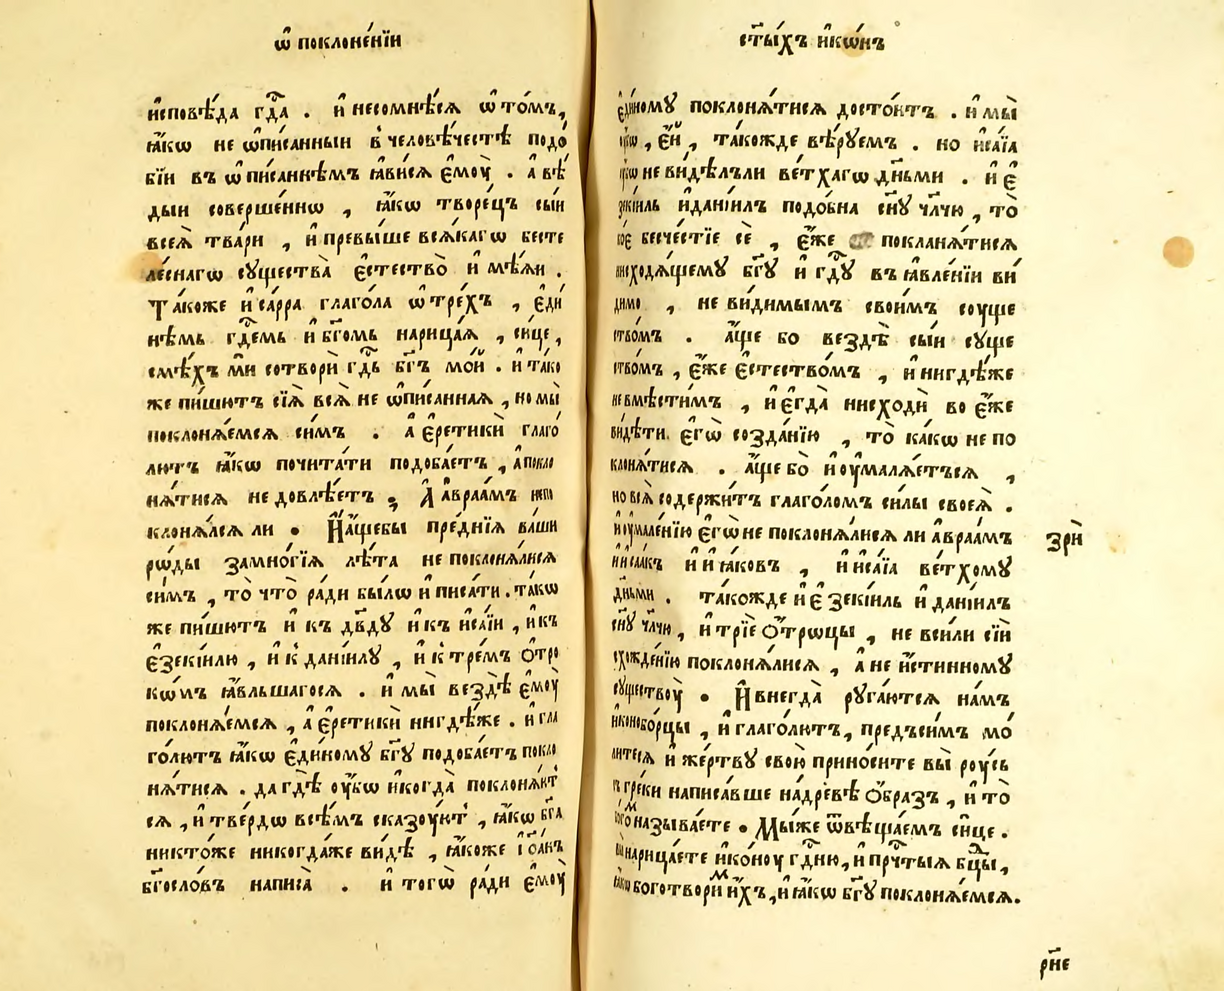 ѿ поклоне́нїи
и҆сповѣ́да гдⷭ҇а . и҆ несомнѣ́сѧ ѡ҆ то́мъ,
ꙗ҆́кѡ не ѡ҆пи́санныи в̾ человѣ́чествѣ подо́
бїи въ ѡ҆писаннѣ́мъ ꙗ҆ви́сѧ є҆моу̀ . а вѣ́
дыи соверше́ннѡ , ꙗ҆́кѡ творе́цъ сы́и
всеѧ̀ тва́ри , и҆ превы́ше всѧ́кагѡ бесте
ле́снагѡ сꙋщества̀ є҆стество̀ и҆ мѣ́ѧи .
Та́коже и҆ са́рра глаго́ла ѡ҆ тре́хъ , є҆ди́
нѣмъ гдⷭ҇емъ и҆ бг҃омъ нарица́ѧ , си́це ,
смѣ́хъ мѝ сотворѝ гдⷭ҇ь бг҃ъ мо́й . и҆ та́ко
же пи́шютъ сїѧ̀ всѧ̀ не ѡ҆пи́саннаѧ , но мы̀
поклонѧ́емсѧ си́мъ . а҆ є҆ретикѝ глаго́
лютъ ꙗ҆́кѡ почита́ти подоба́етъ , а҆ покло
нѧ́тисѧ не довлѣ́етъ ; А҆ а҆враа́мъ непо
клонѧ́лсѧ ли . И҆ а҆́щебы пре́днїѧ ва́ши
рѡ́ды за мно́гїѧ лѣ́та не поклонѧ́лисѧ
си́мъ , то что̀ ра́ди бы́лѡ и҆ писа́ти . та́кѡ
же пи́шютъ и҆ къ дв҃дꙋ и҆ къ и҆са́їи , и҆ къ
є҆зекі́илю , и҆ к̾ данїи́лꙋ , и҆ к̾ тре́мъ ѻ҆́тро
кѡ́мъ ꙗ҆́вльшагосѧ . и҆ мы̀ вездѣ̀ є҆моу̀
поклонѧ́емсѧ , а҆ є҆ретикѝ нигдѣ́же . и҆ гла
го́лютъ ꙗ҆́кѡ є҆ди́номꙋ бг҃ꙋ подоба́етъ покло
нѧ́тисѧ . да гдѣ̀ оу҆́бѡ и҆ногда̀ поклонѧ́ют̾
сѧ , и҆ тве́рдѡ всѣ́мъ сказоуют̾ , ꙗ҆́кѡ бг҃а
никто́же никогда́же ви́дѣ , ꙗ҆́коже і҆ѡа́нъ
бг҃осло́въ написа̀ . и҆ тогѡ̀ ра́ди є҆моу̀
ст҃ы́хъ и҆кѡ́нъ
є҆ди́номꙋ поклонѧ́тисѧ досто́итъ . и҆ мы̀
є҆́й , та́кожде вѣ́рꙋемъ . но и҆са́їа
не ви́дѣлъ ли ве́тхагѡ дн҃ьми . и҆ є҆
зекі́иль и҆ данїи́лъ подо́бна сн҃ꙋ чл҃чю , то̀
коѐ бесче́стїе сѐ , є҆́же поклонѧ́тисѧ
нисходѧ́щемꙋ бг҃ꙋ и҆ гдⷭ҇ꙋ въ ꙗ҆вле́нїи ви́
димо , не ви́димымъ свои́мъ соуще
ство́мъ . а҆́ще бо вездѣ̀ сы́и сꙋще
ство́мъ , є҆́же є҆стество́мъ , и҆ нигдѣ́же
невмѣсти́мъ , и҆ є҆гда̀ нисходѝ во є҆́же
ви́дѣти є҆гѡ̀ созда́нїю , то̀ ка́кѡ не по
клонѧ́тисѧ . а҆́ще бо̀ и҆ оу҆малѧ́етъсѧ ,
но всѧ̀ содержи́тъ глаго́ломъ си́лы своеѧ̀ .
и҆ оу҆мале́нїю є҆гѡ̀ не поклонѧ́лисѧ ли а҆враа́мъ
и҆ и҆саа́къ и҆ и҆ ꙗ҆́ковъ , и҆ и҆са́їа ве́тхомꙋ
дн҃ьми . та́кожде и҆ є҆зекі́иль и҆ данїи́лъ
сн҃ꙋ чл҃чю , и҆ трїѐ ѻ҆́троцы , не вси́ ли сїѝ
схожде́нїю поклонѧ́лисѧ , а҆ не и҆́стинномꙋ
сꙋществоу̀ . И҆ внегда̀ рꙋга́ютсѧ на́мъ
и҆конобо́рцы , и҆ глаго́лютъ , предъ си́мъ мо́
литесѧ и҆ же́ртвꙋ свою̀ прино́сите вы̀ роу́сь
гре́ки написа́вше на дре́вѣ ѻ҆́бразъ , и҆ то
называ́ете . Мы́же ѿвѣща́емъ си́це .
нарица́ете и҆ко́ноу гдⷭ҇ню , и҆ прч҇тыѧ бц҃ы ,
боготвори́м и҆́хъ , и҆ ꙗ҆́кѡ бг҃ꙋ поклонѧ́емсѧ .
зрѝ
рн҃е